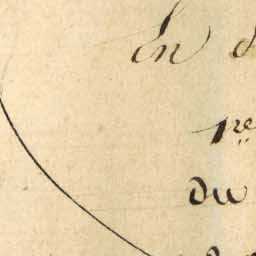 En
1re
du